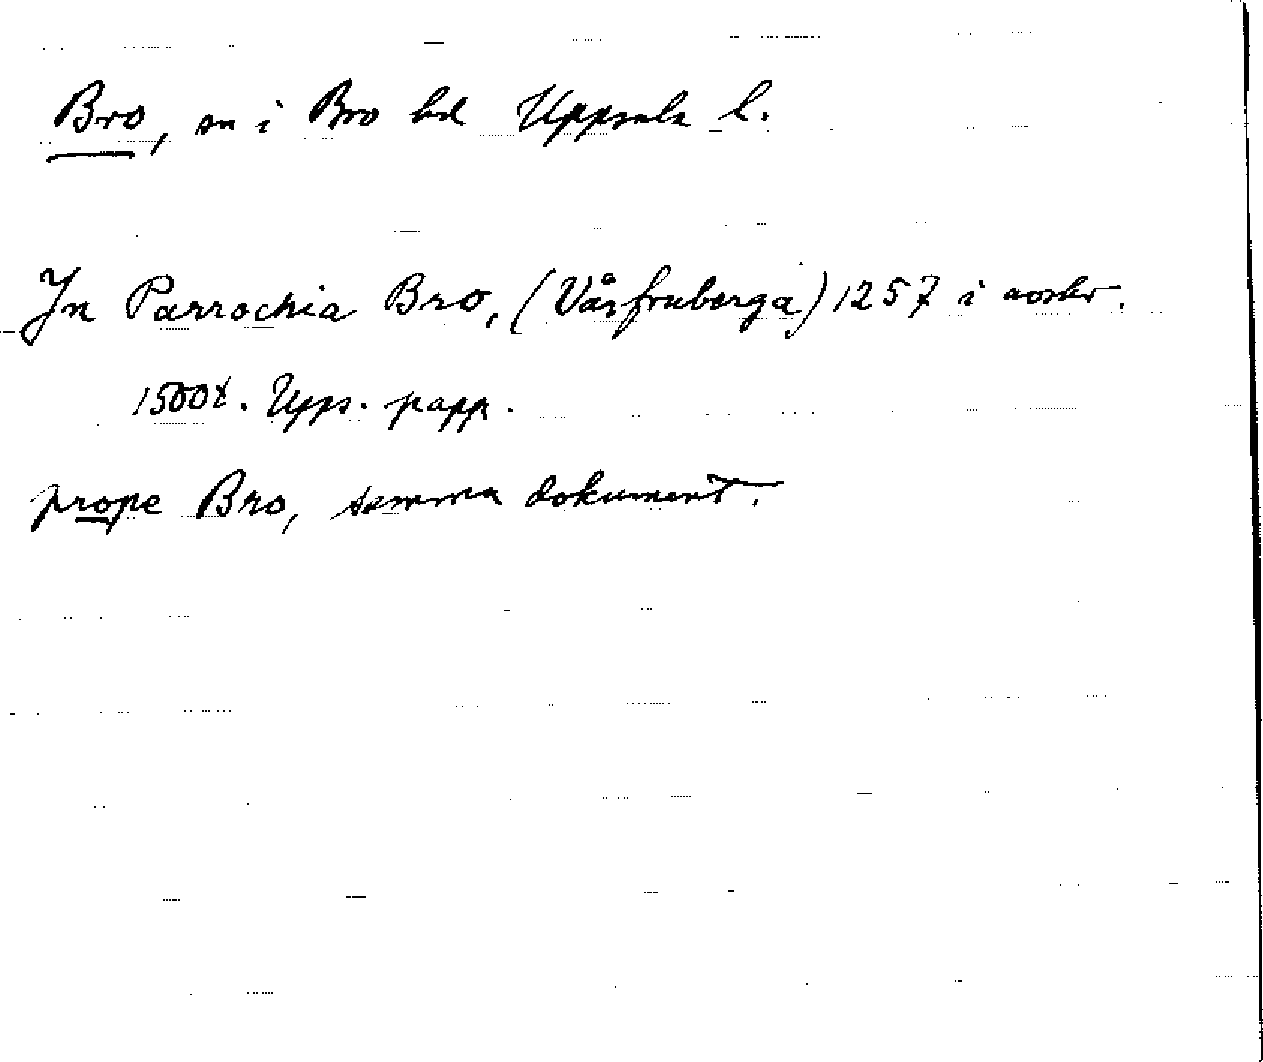 Bro, sn i Bro hd Uppsala l.
In Parrochia Bro, (Vårfruberga) 1257 i avskr.
1500t. Upps. papp.
prope Bro, samma dokument.